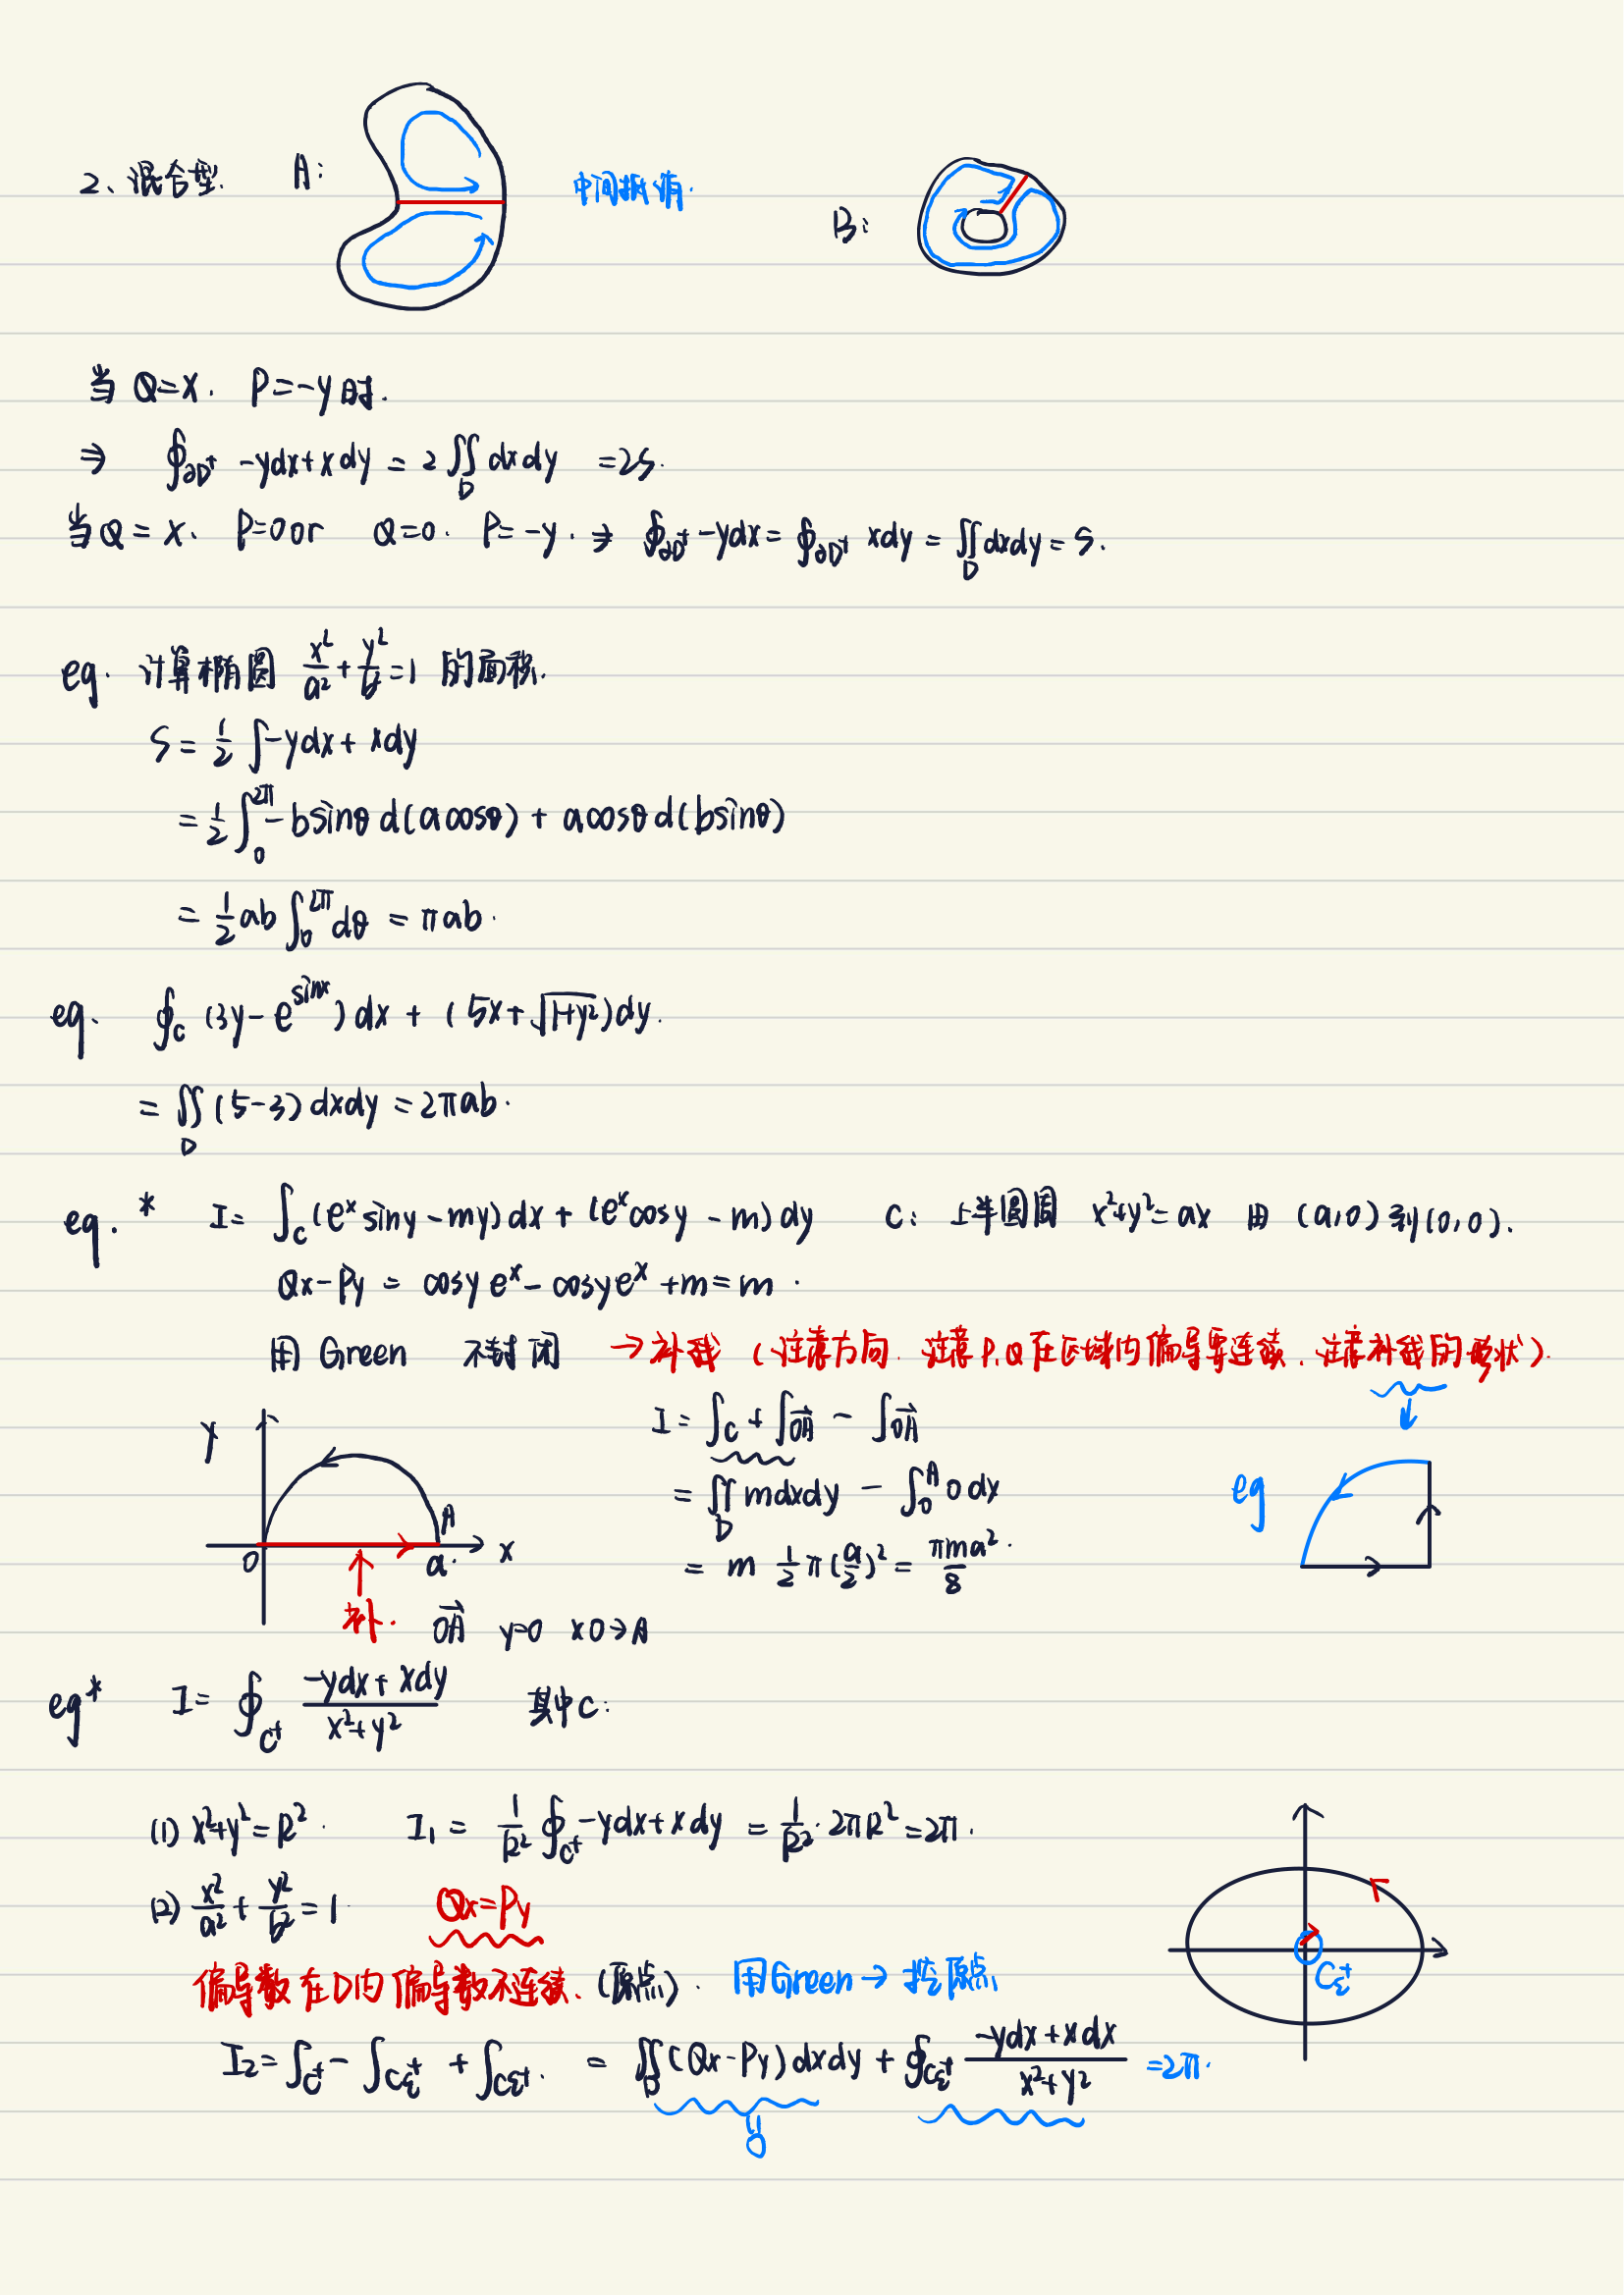 2、混合型. A: 中间抵消. B:
当 Q=x. P=-y 时.
⇒ ∮∂D⁺ -ydx+xdy = 2∬D dxdy =2S.
当Q=x. P=0 or Q=0. P=-y. ⇒ ∮∂D⁺ -ydx = ∮∂D⁺ xdy = ∬D dxdy = S.
eg. 计算椭圆 x²/a² + y²/b² = 1 的面积.
S = 1/2 ∫-ydx + xdy
= 1/2 ∫₀^2π -bsinθ d(acosθ) + acosθ d(bsinθ)
= 1/2 ab ∫₀^2π dθ = πab.
eg. ∮c (3y-e^sinx) dx + (5x+√(1+y²)) dy.
= ∬D (5-3) dxdy = 2πab.
eg.* I= ∫c (eˣsiny-my) dx + (eˣcosy-m) dy C: 上半圆周 x²+y²=ax 由 (a,0) 到 (0,0).
Qx-Py = cosy eˣ - cosy eˣ + m = m.
用 Green 不封闭 →补线 (注意方向. 注意 P.Q 在区域内偏导要连续. 注意补线的形状).
I = ∫c + ∫OA⃗ - ∫OA⃗
y eg
= ∬D mdxdy - ∫₀^A 0 dx
O A a. x
= m 1/2 π(a/2)² = πma²/8.
补. OA⃗ y=0 x 0→A
eg* I= ∮c⁺ (-ydx+xdy)/(x²+y²) 其中C:
(1) x²+y²=R². I₁ = 1/R² ∮c⁺ -ydx+xdy = 1/R²·2πR² = 2π.
(2) x²/a² + y²/b² = 1. Qx=Py
偏导数在D内偏导数不连续. (原点). 用Green → 挖原点. Cε⁺
I₂ = ∫c⁺ - ∫cε⁺ + ∫cε⁺. = ∬D (Qx-Py) dxdy + ∮cε⁺ (-ydx+xdx)/(x²+y²) =2π.
0